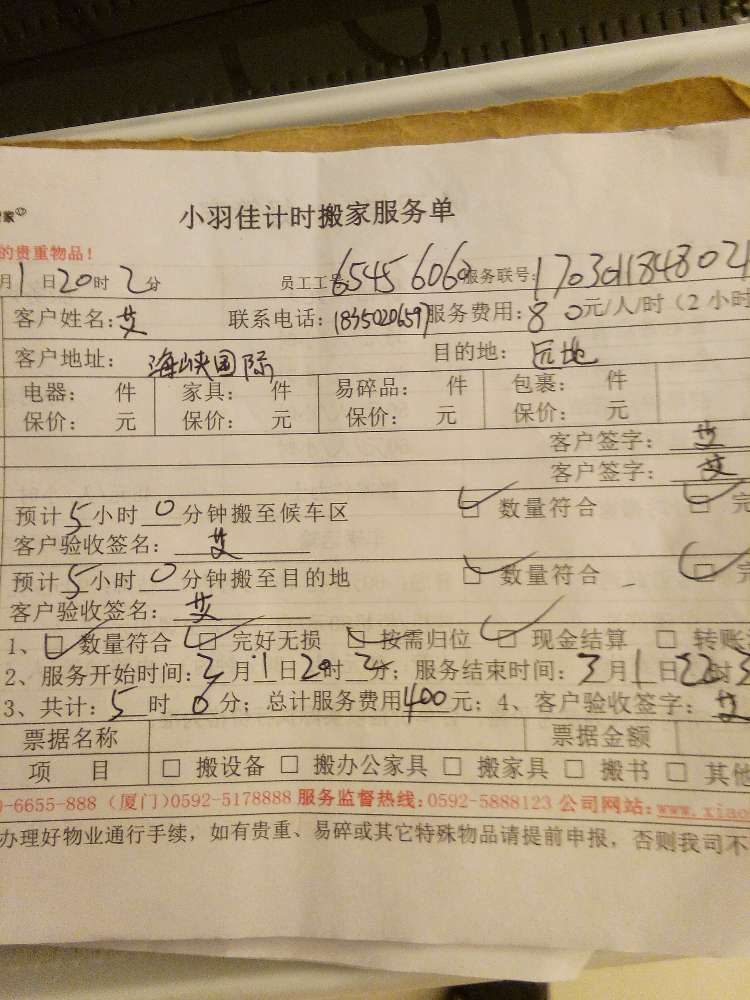 家
小羽佳计时搬家服务单
的贵重物品!
月1日20时2分 员工工号:6545 6060 服务联号:170301184802
客户姓名:艾 联系电话:18350206597 服务费用:80元/人/时(2小时
客户地址: 海峡国际 目的地: 远地
电器: 件 家具: 件 易碎品: 件 包裹: 件
保价: 元 保价: 元 保价: 元 保价: 元
客户签字: 艾
客户签字: 艾
预计5小时0分钟搬至候车区 ☑ 数量符合 ☑ 完
客户验收签名: 艾
预计5小时0分钟搬至目的地 ☑ 数量符合 ☑ 完
客户验收签名: 艾
1、☑ 数量符合 ☑ 完好无损 ☑ 按需归位 ☑ 现金结算 □ 转账
2、服务开始时间:3月1日20时 分;服务结束时间:3月1日22时3
3、共计:5时0分;总计服务费用400元;4、客户验收签字:艾
票据名称 票据金额
项 目 □ 搬设备 □ 搬办公家具 □ 搬家具 □ 搬书 □ 其他
0-6655-888(厦门)0592-5178888 服务监督热线:0592-5888123 公司网站:www.xiao
办理好物业通行手续,如有贵重、易碎或其它特殊物品请提前申报,否则我司不